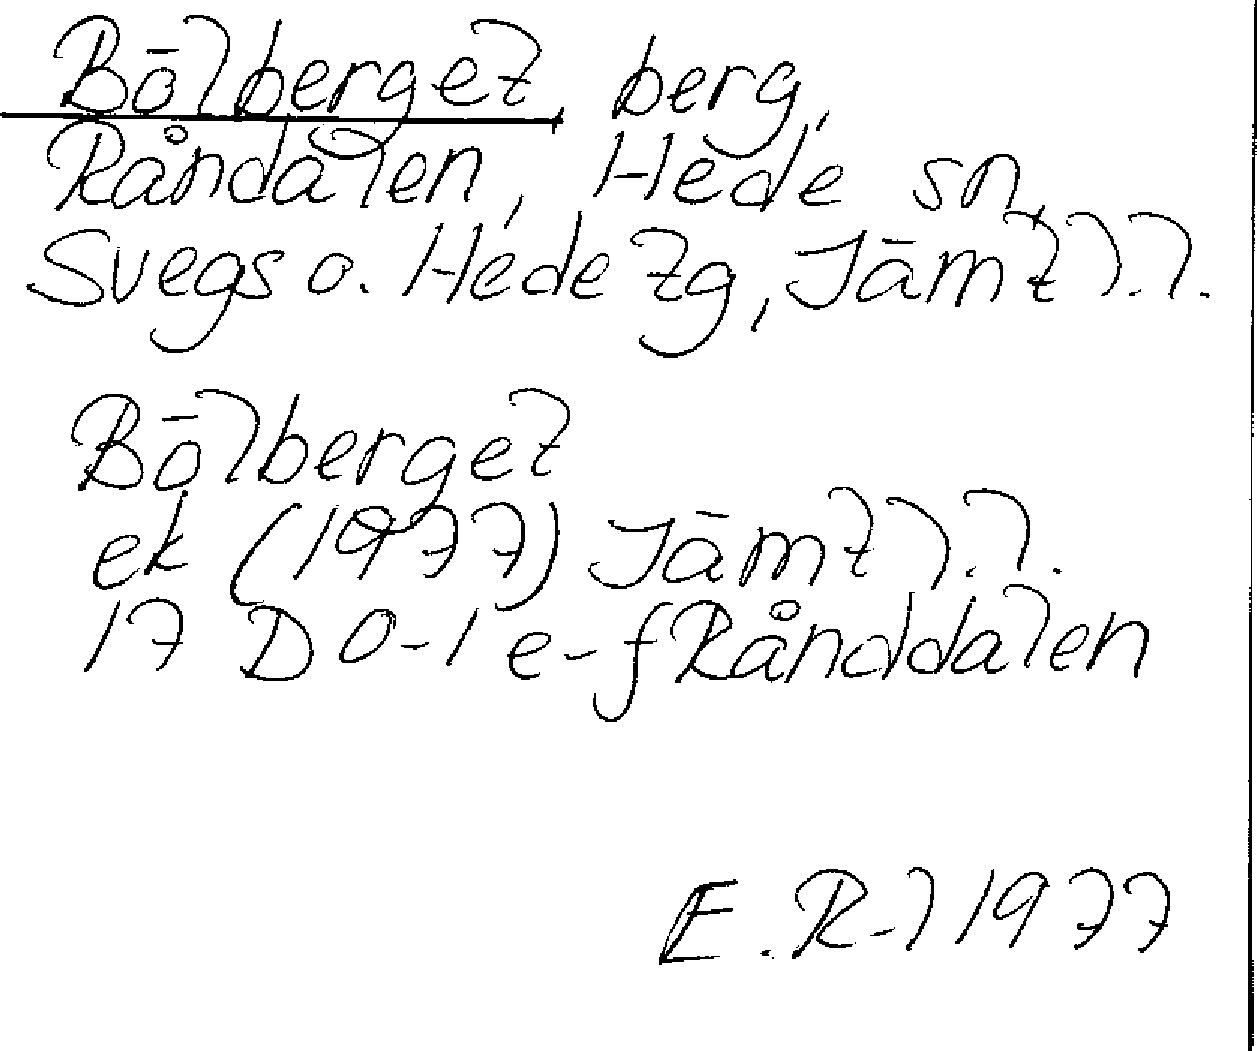 Bölberget, berg,
Råndalen, Hede sn,
Svegs o. Hede tg, Jämtl.
Bölberget
ek (1977) Jämtl.
17 D 0-1 e-f Rånddalen
E. R-l 1977